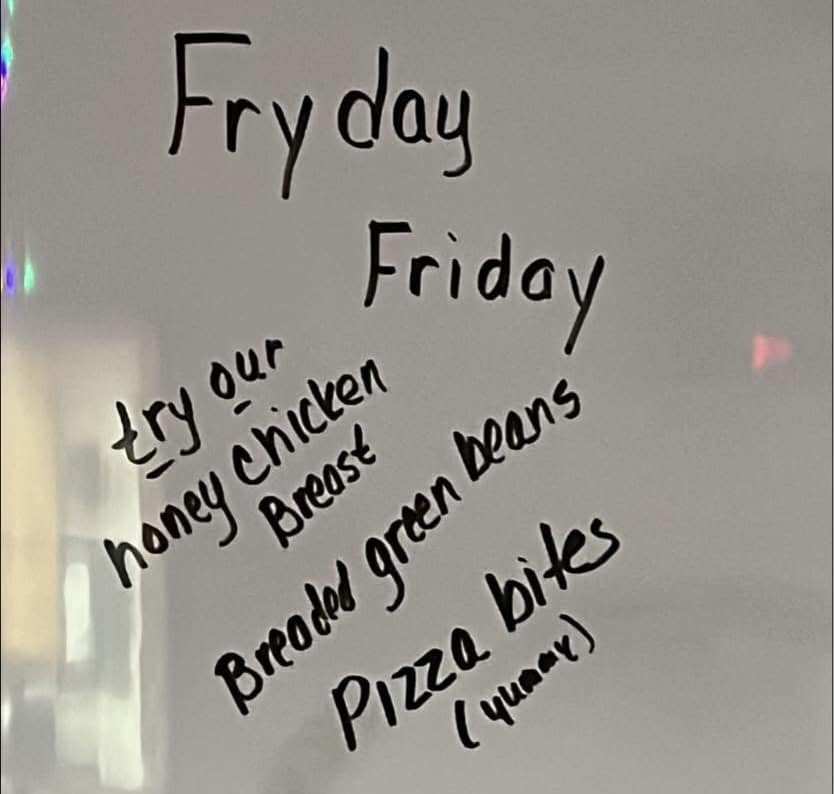 Fryday
Friday
try our
honey chicken
Breast
Breaded green beans
Pizza bites
(yummy)